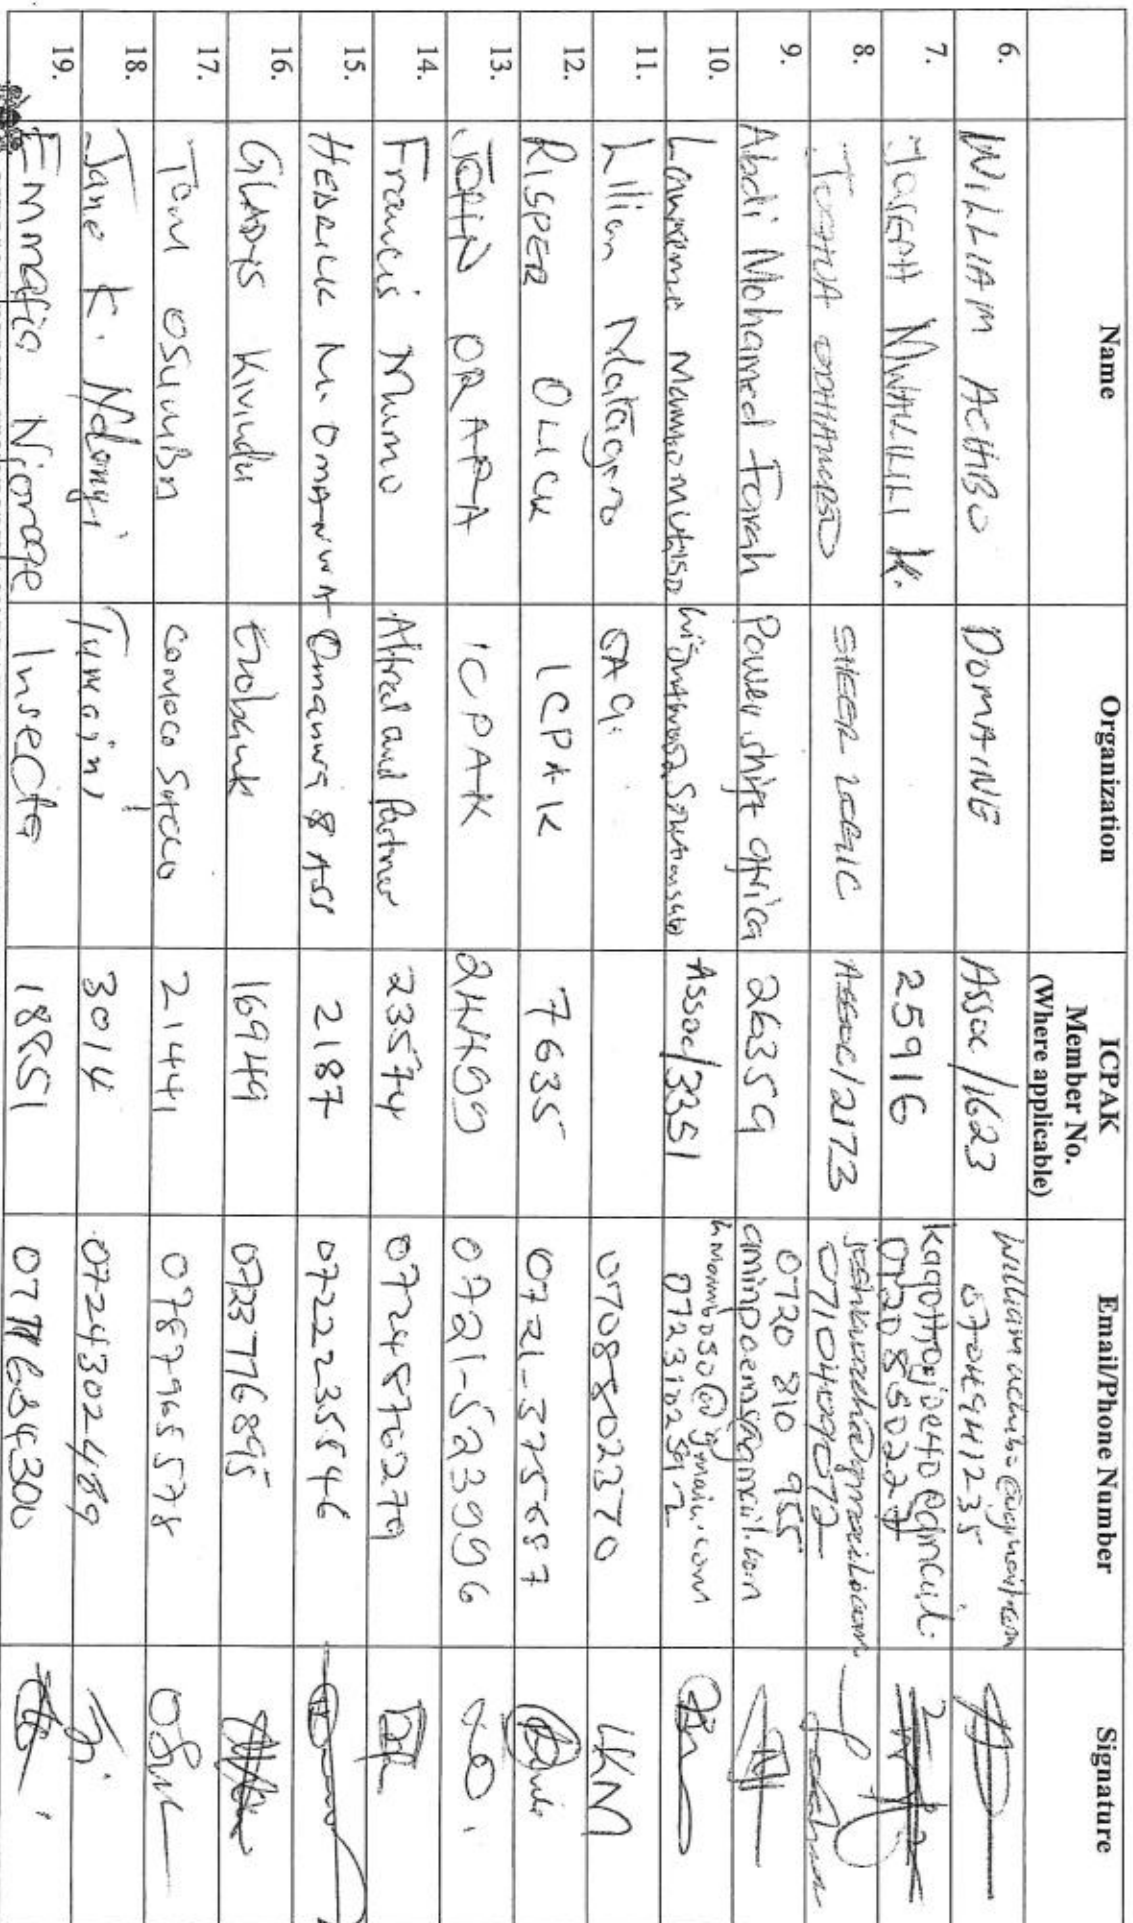 Name Organization ICPAK Member No. (Where applicable) Email/Phone Number Signature
6. WILLIAM ACHIBO DOMAINE Assoc/1623
0704941235
7. JOSEPH MWALILI K. 25916
0720850227
8. JOSHUA ODHIAMBO SHEER LOGIC Assoc/2173
0710409072
9. Abdi Mohamed Farah Power shift Africa 26359 0720 810 955
aminpoems@gmail.com
10. Assoc/3351
0723102592
11. Lilian Matagaro OAG. 0708802370 LKM
12. RISPER OLICK ICPAK 7635 0721-375687
13. JOHN ORARA ICPAK 24499 0721-523996
14. Francis Mumo and Partner 23574 0724876279
15. HEDRICK M. OMANWA Omanwa & Ass 2187 0722235546
16. GLADYS Kivindu Ecobank 16949 0723776895
17. TOM OSUMBA COMOCO SACCO 21441 0787965578
18. Jane K. Ndonyi Tumaini 3014 0724302489
19. Njorage Insecta 18851